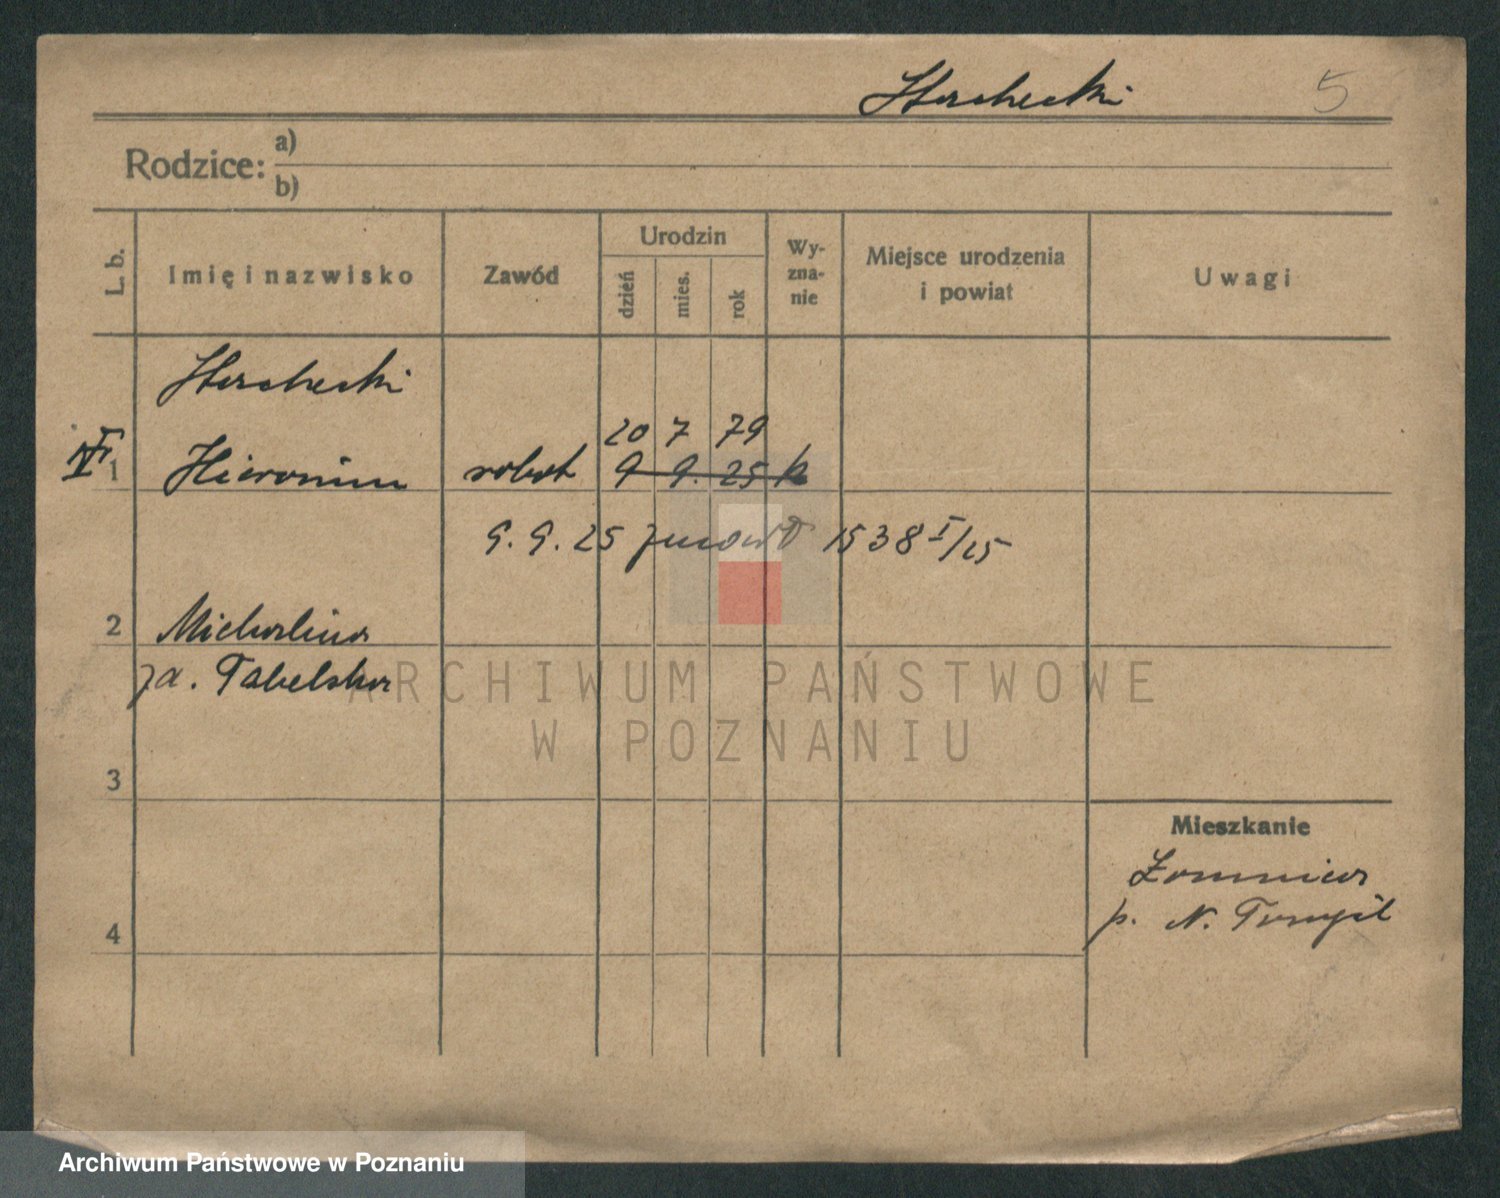 5
Rodzice: a)
b)
L. b.
Imię i nazwisko
Zawód
Urodzin
dzień
mies.
rok
Wy-
zna-
nie
Miejsce urodzenia
i powiat
Uwagi
20 7 79
1 Hieronim robot 9 9. 25 k
9. 9. 25 1538 I/25
2 Michalina
za. Tabelska
ARCHIWUM PAŃSTWOWE
W POZNANIU
3
Mieszkanie
Łomnica
p. N. Tomyśl
4
Archiwum Państwowe w Poznaniu